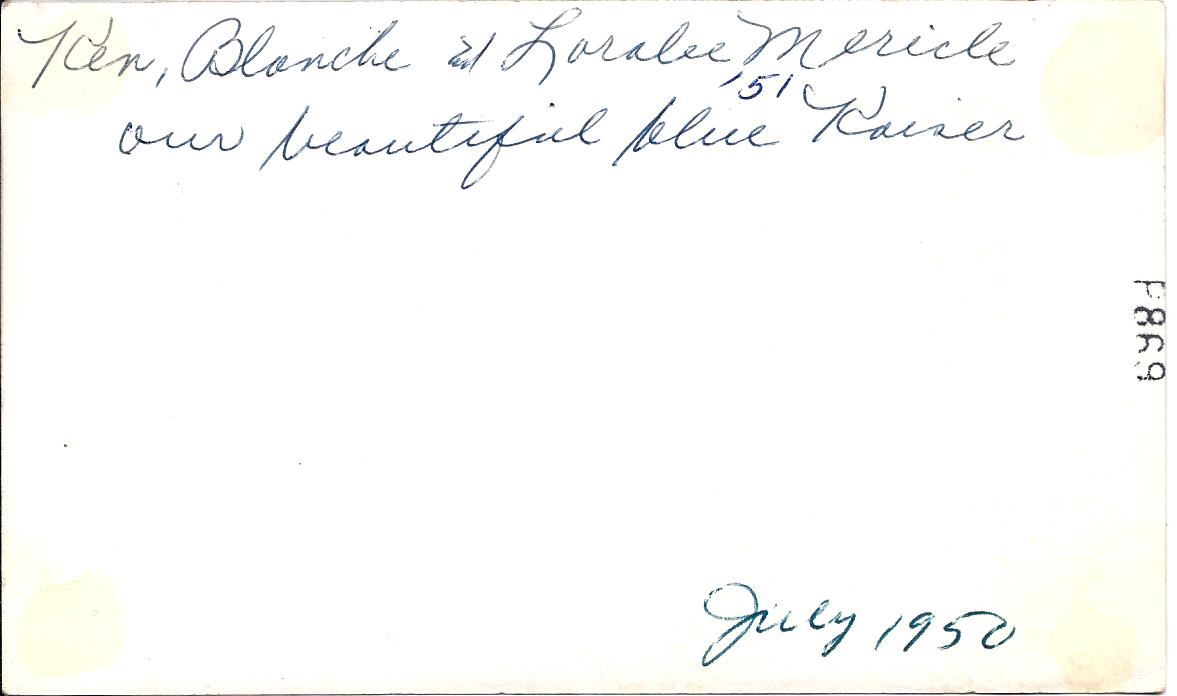 Ken, Blanche and Loralee Mericle
'51
our beautiful blue Kaiser
F869
July 1950